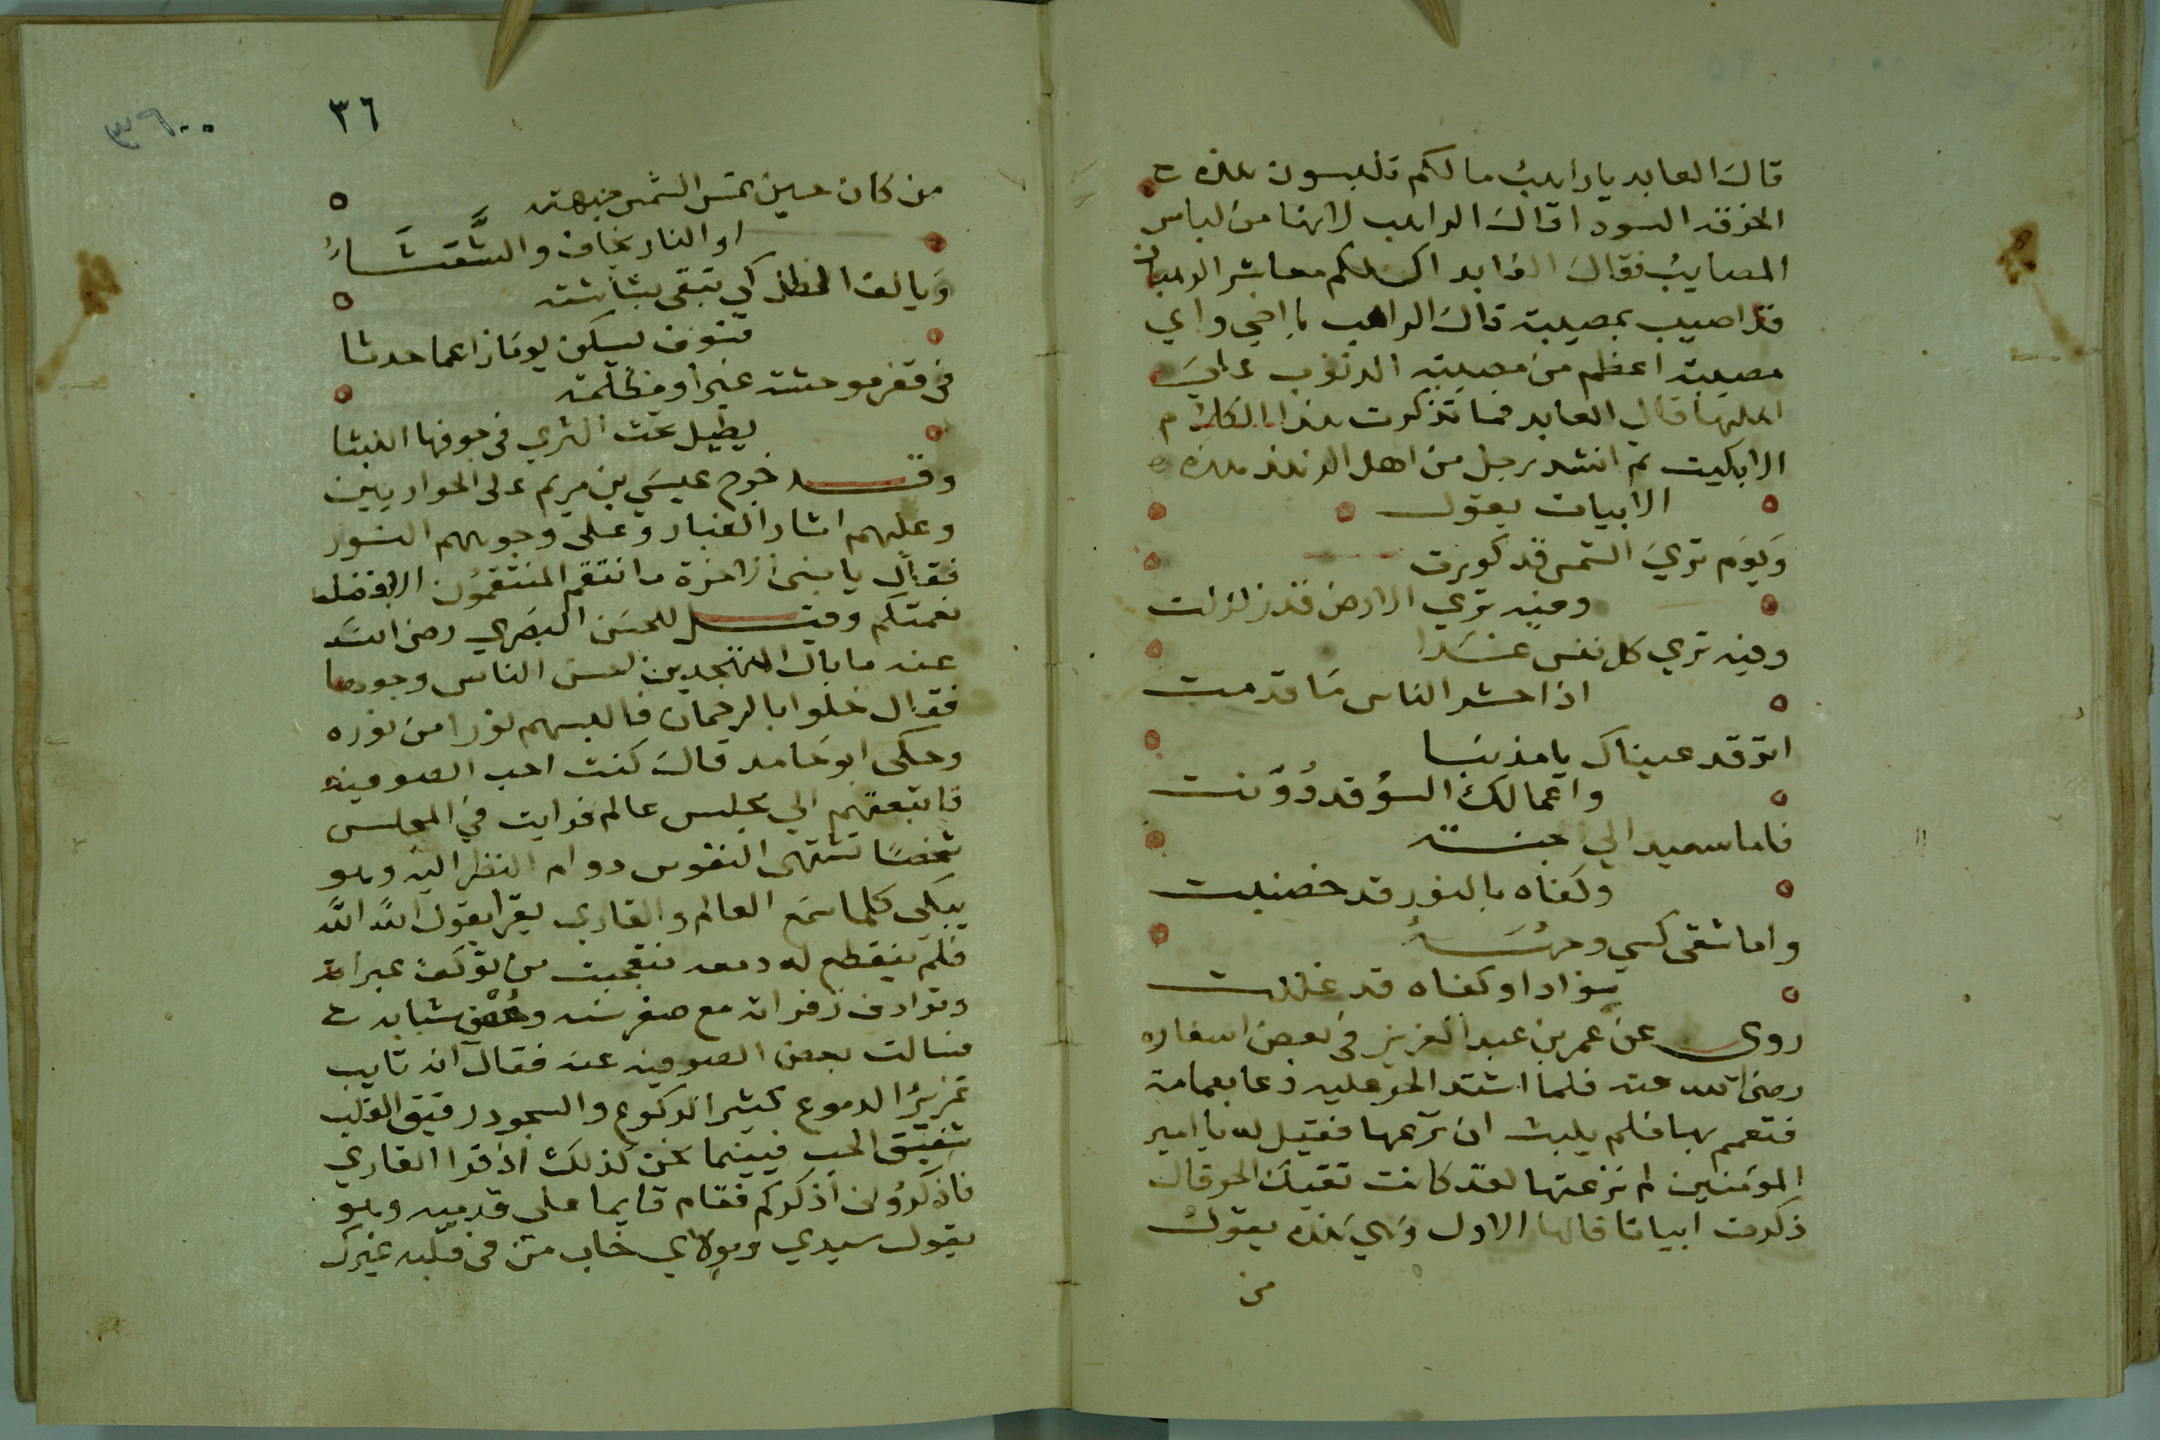 قال العابد يا راهب ما لكم تلبسون هذه
الخرقه السود اقال الراهب لانها من لباس
المصايب فقال العابد اكلكم معاشر الرهبان
قد اصيب بمصيبة قال الراهب يا اخي واي
مصيبة اعظم من مصيبة الذنوب علي
اهلها قال العابد فما تذكرت هذا الكلام
الا بكيت ثم انشد رجل من اهل الزهد هذه
الابيات يقول
وَيوَم تري الشمس قد كورت
وفيه تري الارض قد زلزلت
وفيه تري كل نفس غدا
اذا حشر الناس مَا قدمت
اترقد عيناك يا مذنبا
واعمالك السُو قد دُوّنت
فاما سعيد الي جنة
وكفاه بالنور قد خضبت
واما شقى كسي وجهُهُ
سوادا وكفاه قد غللت
روى عن عمر بن عبد العزيز فى بعض اسفاره
رضى الله عنه فلما اشتد الحر عليه دعا بعمامة
فتعمم بها فلم يلبث ان نزعها فقيل له يا امير
المؤمنين لم نزعتها لقد كانت تقيك الحر قال
ذكرت ابياتا قالها الاول وَهي هذه يقول
من
٣٦
٣٦٠٠
من كان حين تمس الشمس جبهته
او النار يخاف والشَّعَثَا
وَيالف الظل كي تبقى بشاشته
فسوف يسكن يومَا زاعما حدثا
فى قفر موحشة غبرا ومظلمة
يطيل تحت الثري فى جوفها اللبثا
وقد خرج عيسَي بن مريم على الحواريين
وعليهم اثار الغبار وعلى وجوههم النور
فقال يا بنى الاخرة ما انتعم المنتعمُون الا بفضل
نعمتكم وقيل للحسَن البصَري رضى الله
عنه ما بال المتهجدين احسن الناس وجوها
فقال خلوا بالرحمان فالبسهم نورا من نوره
وحكى ابو حَامد قال كنت احب الصوفيه
فاتبعتهم الي مجلس عالم فرايت في المجلس
شخصًا تشتهى النفوس دوام النظر اليه وهو
يبكي كلما سمَع العالم والقاري يقرا يقول الله الله
فلم ينقطع له دمعه فتعجبت من توكف عبراته
وترادف زفراته مع صغر سنه وغُصْن شبابه
فسالت بعض الصوفيه عنه فقال انه تايب
غزيرُ الدموع كثير الركوع والسجود رقيق القلب
شفيق الحب فبينما نحن كذلك اذ قرا القاري
فاذكروُنى اذكركم فقام قايما على قدميه وهو
يقول سيدي ومولاي خاب من فى قلبه غيرك